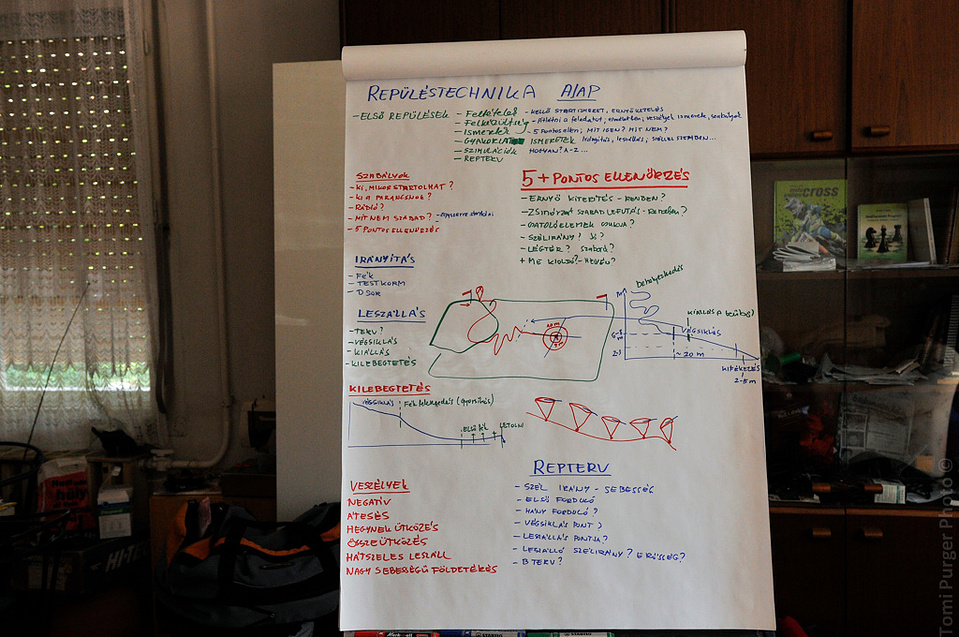 REPÜLÉSTECHNIKA ALAP
- ELSŐ REPÜLÉSEK - Feltételek - KELLŐ STARTISMERET, ERNYŐKEZELÉS
- Felkészültség
- Ismeretek - 5 pontos ellen; MIT IGEN? MIT NEM?
- GYAKORLAT ISMERETEK
- SZIMULÁCIÓK HOGYAN? A-Z...
- REPTERV
SZABÁLYOK
- KI, MIKOR STARTOLHAT?
- KI A PARANCSNOK?
- RÁDIÓ?
- MIT NEM SZABAD?
- 5 PONTOS ELLENŐRZÉS
5 + PONTOS ELLENŐRZÉS
- ERNYŐ KITERÍTÉS - RENDBEN?
- ZSINÓRZAT SZABAD LEFUTÁS - RENDBEN?
- CSATOLÓELEMEK CSUKVA?
- SZÉLIRÁNY?
- LÉGTÉR? Szabad?
+ ME KIOLDÓ? - HELYÉN?
IRÁNYÍTÁS
- FÉK
- TESTKORM
- D SOR
LESZÁLLÁS
- TERV?
- VÉGSIKLÁS
- KIÁLLÁS
- KILEBEGTETÉS
Behelyezkedés
VÉGSIKLÁS
~ 20 m
KIFÉKEZÉS
2-5 m
KILEBEGTETÉS
VÉGSIKLÁS
ELSŐ FÉK
LETOLNI
VESZÉLYEK
NEGATÍV
ÁTESÉS
HEGYNEK ÜTKÖZÉS
ÖSSZEÜTKÖZÉS
HÁTSZELES LESZÁLL
NAGY SEBESSÉGŰ FÖLDETÉRÉS
REPTERV
- SZÉL IRÁNY - SEBESSÉG
- ELSŐ FORDULÓ
- HÁNY FORDULÓ?
- VÉGSIKLÁS PONT?
- LESZÁLLÁS PONTJA?
- LESZÁLLÓ SZÉLIRÁNY? ERŐSSÉG?
- B TERV?
CROSS
Tomi Purger Photo ©